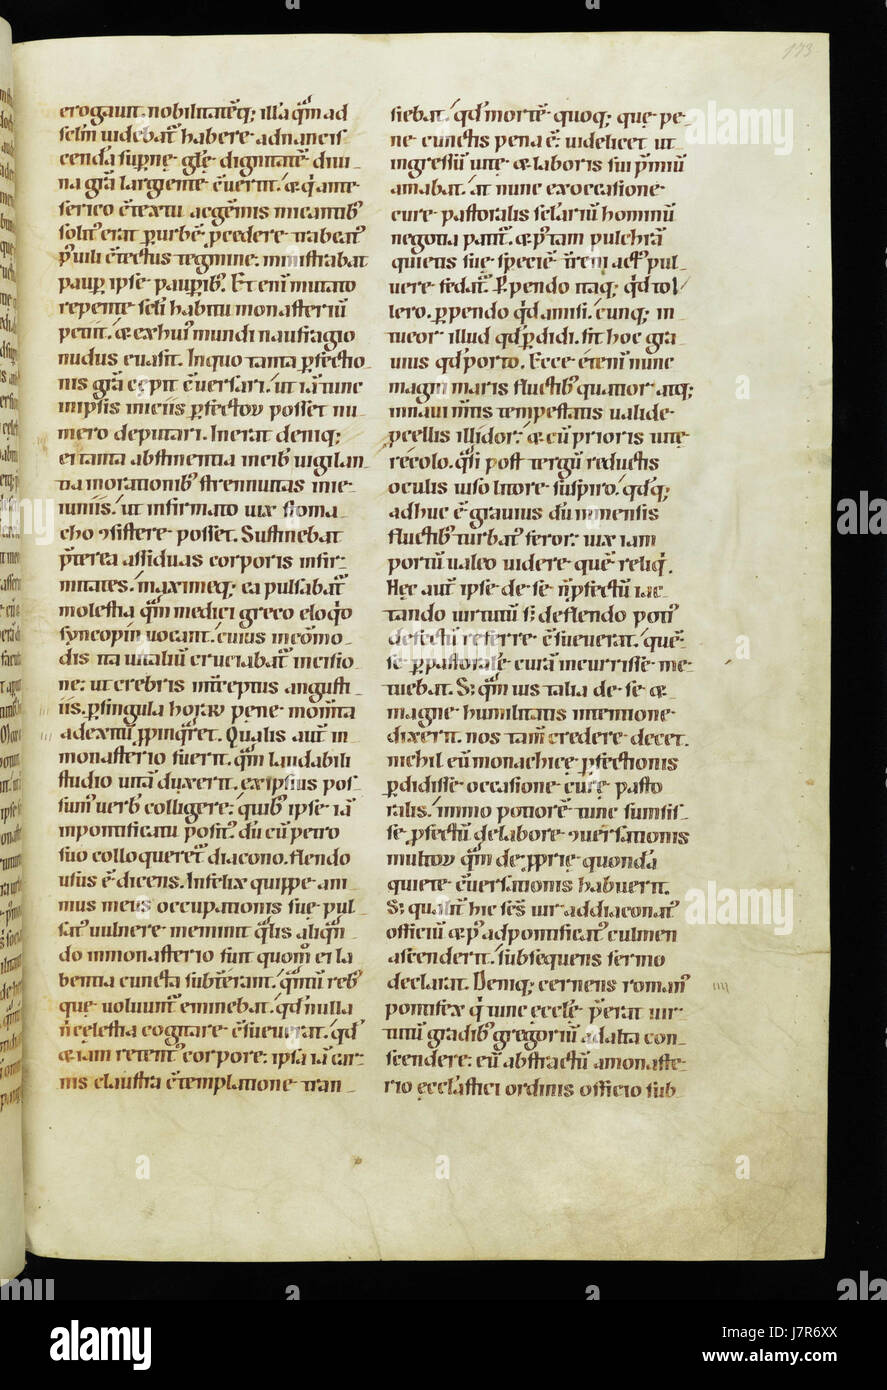 173
erogauit. nobilitatēq; illā qm̄ ad
sclm̄ uidebat᷑ habere. ad nancis
cendā supne glę dignitatē diui
na grā largiente c̄uertit. & q' ante
serico c̄textu ac gēmis micantib;
solit' erat p urbē. pcedere trabeat'
p'uili c̄tectus tegmine. ministrabat
paup ipse pauprib;. Et eni mutato
repente scli habitu monasteriū
petiit. & ex hui' mundi naufragio
nudus euasit. In quo tanta pfectio
nis grā cępit c̄uersari. ut iā tunc
in ipsis iniciis pfectoꝝ posset nu
mero deputari. Inerat deniq;
ei tanta abstinentia in cib' uigilan
tia in orationib' strennuitas in ie
iuniis. ut infirmato uix stoma
cho ꝯsistere posset. Sustinebat
p̄terea assiduas corporis infir
mitates. maximeq; ea pulsabat᷑
molestia quā medici greco eloq'o
syncopin uocant. cuius incōmo
dis ita uitaliū cruciabat᷑ incisio
ne: ut crebris int̄reptus angusti
iis. p singula horaꝝ pene momta
ad exitū ppinqret. Qualis aut̄ in
monasterio fuerit. qm̄ laudabili
studio uitā duxerit. ex ipsius pos
sum' uerb' colligere. quib' ipse iā
in pontificatu posit'. dū cū petro
suo colloqueret᷑ diacono. flendo
usus ē dicens. Infelix quippe ani
mus meus occupationis suę pul
sat' uulnere meminit qlis aliqn̄
do in monasterio fuit quom̄ ei la
bentia cuncta subt̄erant. qntū reb'
que uoluunt᷑ eminebat. qd' nulla
n̄ celestia cogitare c̄sueuerat. qd'
& iam retent' corpore: ipsa iā car
nis claustra c̄templatione tran
siebat. qd' mortē quoq; quę pe
ne cunctis pena ē: uidelicet ut
ingressū uite & laboris sui p̄miū
amabat. at nunc ex occasione
cure pastoralis sclariū hominū
negotia patit᷑. & p' tam pulchrā
quietis sue speciē t̄reni act' pul
uere fedat᷑. Ppendo itaq; qd tol
lero. ppendo qd amisi. cunq; in
tueor illud qd' pdidi. fit hoc gra
uius qd' porto. Ecce eteni nunc
magni maris fluctib' quatior atq;
in naui m̄tis tempestatis ualide
pcellis illidor: & cū prioris uitę
recolo. q'si post tergū reductis
oculis uiso litore suspiro. qd'q;
adhuc ē grauius dū inmensis
fluctib' turbat' feror: uix iam
portū ualeo uidere quē reliq'.
Hęc aut̄ ipse de se n̄ pfectū iac
tando uirtutū s; deflendo poti'
defectū referre c̄sueuerat. quē
se p pastoralē curā incurrisse me
tuebat. S; qm̄ uis talia de se &
magne humilitatis intentione
dixerit. nos tam̄ credere decet.
nichil eū monachicę pfectionis
pdidisse occasione curę pasto
ralis. immo potiorē tunc sumsis
se pfectū de labore ꝯuersationis
multoꝝ qm̄ de pprię quondā
quiete c̄uersationis habuerit.
S; qualit᷑ hic scs̄ uir ad diaconat'
officiū & p' ad pontificat' culmen
ascenderit. subsequens sermo
declarat. Deniq; cernens roman'
pontifex q' tunc eccle p̄erat uir
tutū gradib' gregoriū ad alta con
scendere: eū abstractū a monaste
rio ecclastici ordinis officio sub
alamy
J7R6XX
www.alamy.com